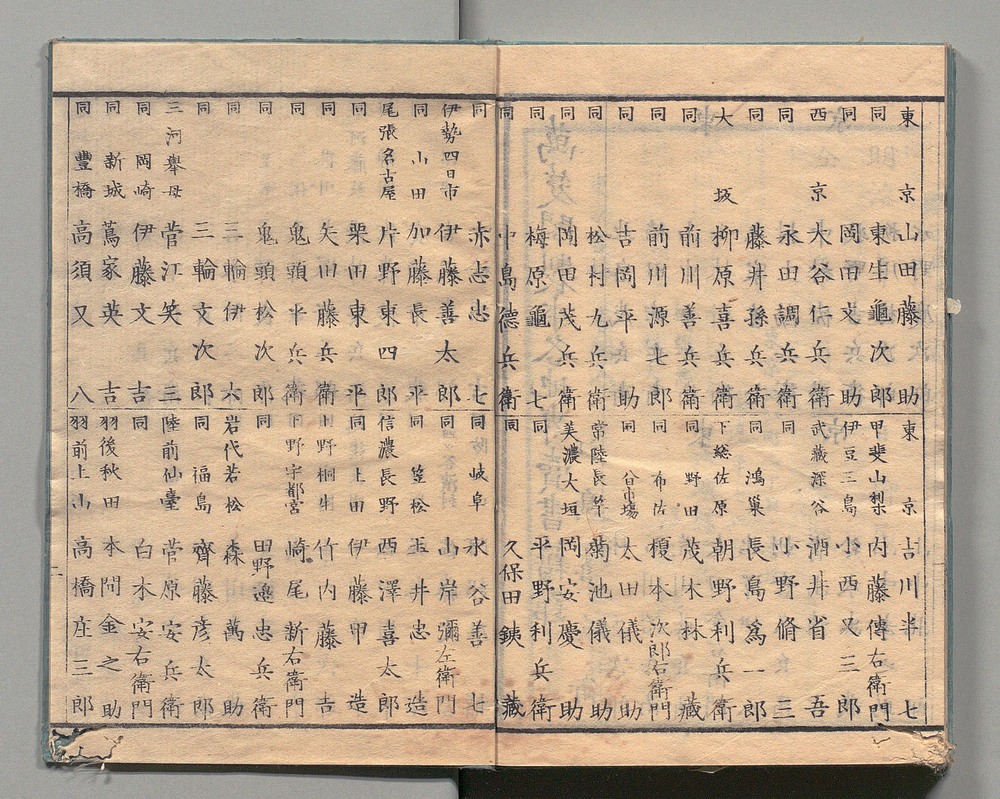 東京 山田藤助
同 東生龜次郎
同 岡田文助
西京 大谷仁兵衛
同 永田調兵衛
同 藤井孫兵衛
大坂 柳原喜兵衛
同 前川善兵衛
同 前川源七郎
同 吉岡平助
同 松村九兵衛
同 岡田茂兵衛
同 梅原龜七
同 中島德兵衛
東京 吉川半七
甲斐山梨 內藤傳右衛門
伊豆三島 小西又三郎
武藏深谷 酒井省吾
同 小野脩三
同 鴻巢 長島爲一郎
下総佐原 朝野利兵衛
同 野田 茂木林藏
同 布佐 榎本次郎右衛門
同 太田儀助
常陸 菊池儀助
美濃大垣 岡安慶助
同 平野利兵衛
同 久保田銕藏
同 赤志忠七
伊勢四日市 伊藤善太郎
同 山田 加藤長平
尾張名古屋 片野東四郎
同 栗田東平
同 矢田藤兵衛
同 鬼頭平兵衛
同 鬼頭松次郎
同 三輪伊六
同 三輪文次郎
三河擧母 菅江笑三
同 岡崎 伊藤文吉
同 新城 蔦家英吉
同 豐橋 高須又八
同 岐阜 水谷善七
同 山岸彌左衛門
同 笠松 玉井忠造
信濃長野 西澤喜太郎
同 上田 伊藤甲造
上野桐生 竹內藤吉
下野宇都宮 崎尾新右衛門
同 田野邉忠兵衛
岩代若松 森萬助
同 福島 齊藤彦太郎
陸前仙臺 菅原安兵衛
同 白木安右衛門
羽後秋田 本間金之助
羽前上山 高橋庄三郎